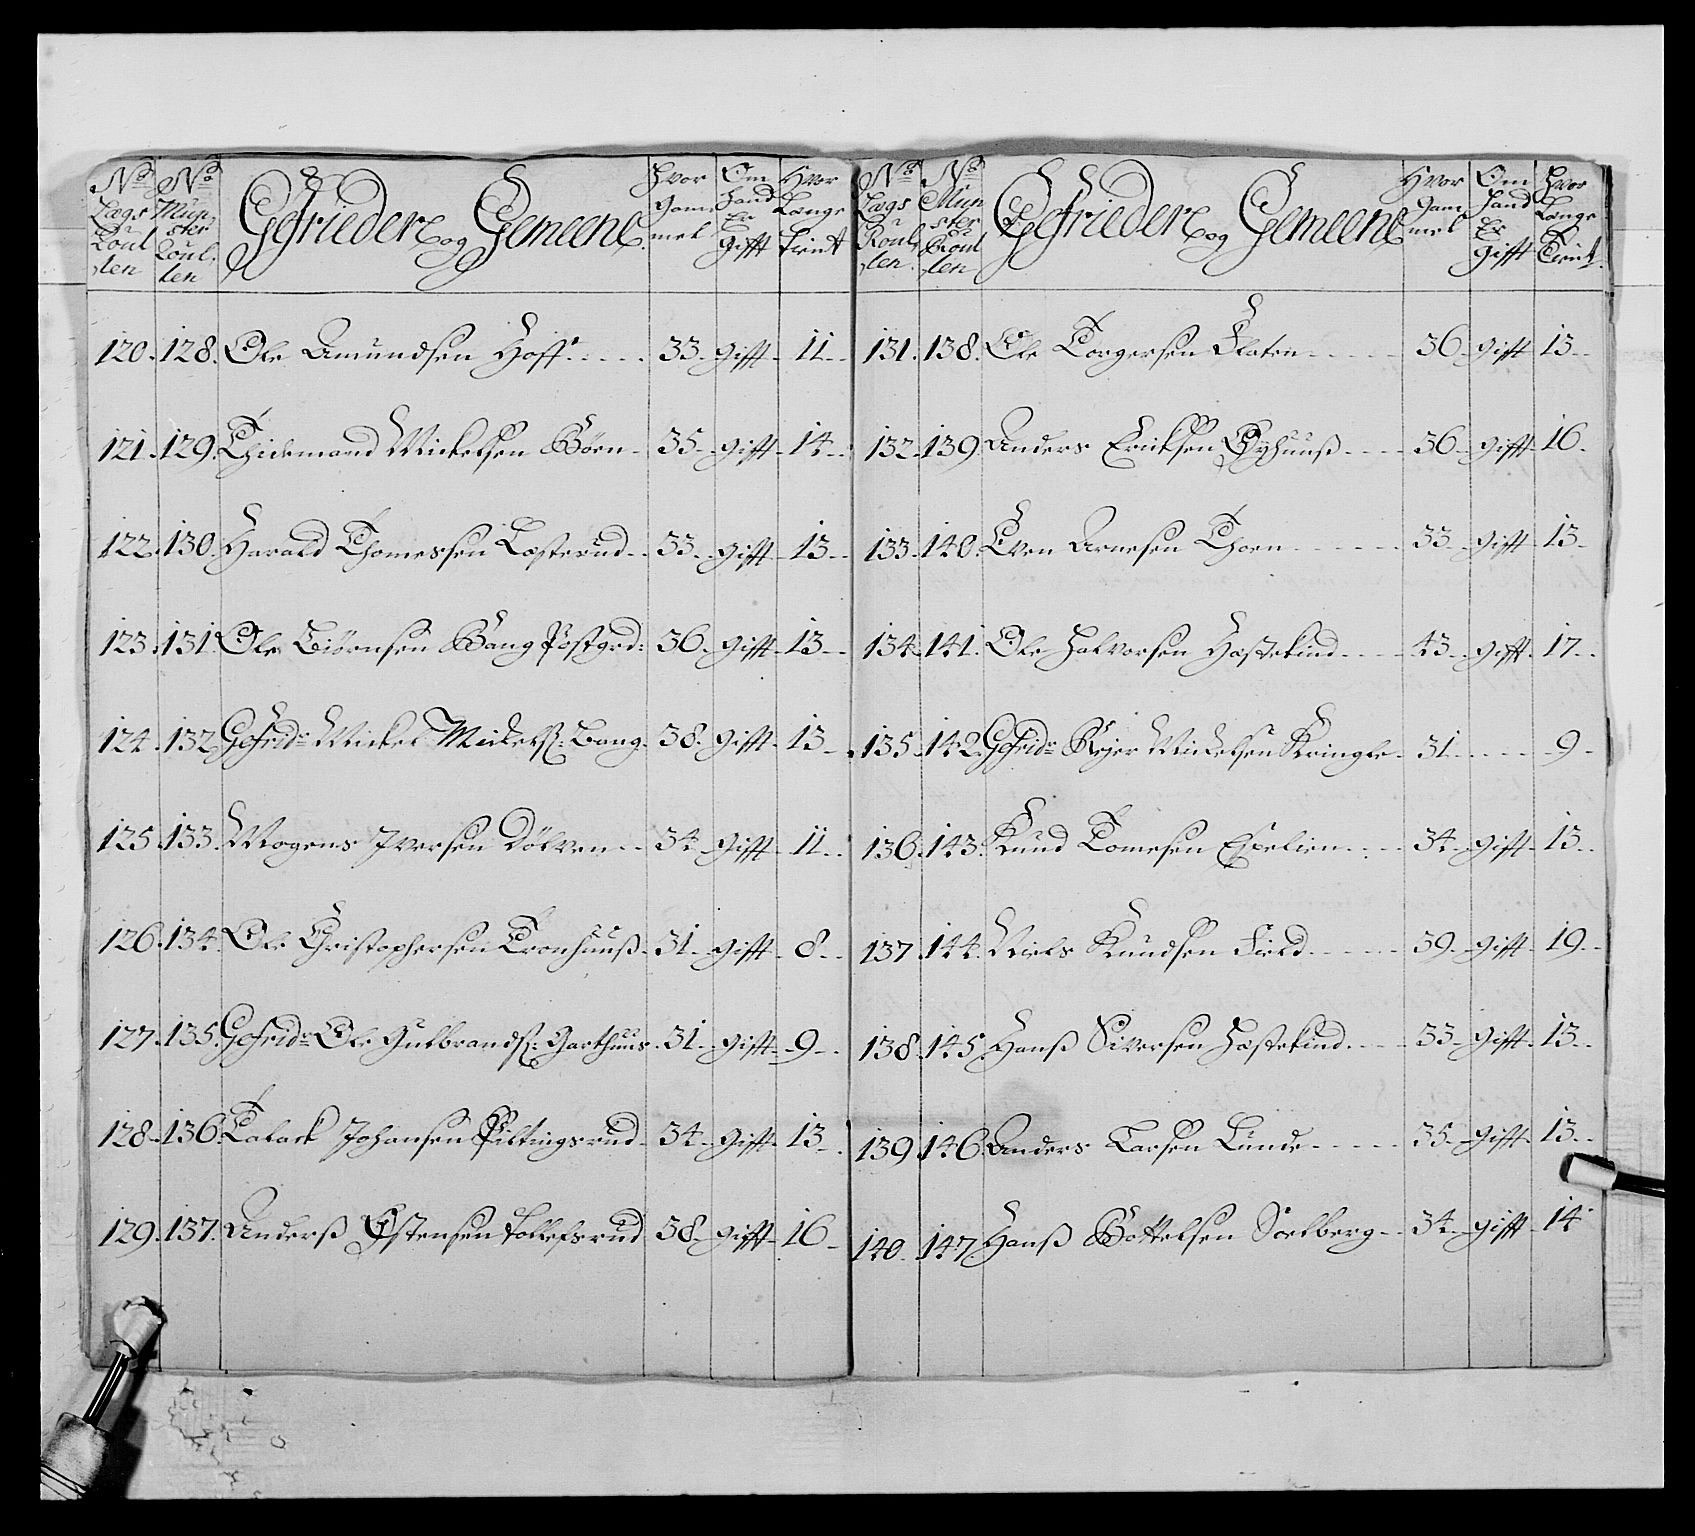 No Lægs Roullen | No Mün ster Roul len | Gefrieder og Gemeene | Hvor Gam mel | Om Hand Er Gifft | Hvor Lange Tient
120. 128. Ole Amundsen Hoff 33. gifft 11
121. 129. Thidemand Mickelsen Börn 35. gifft 14
122. 130. Harald Thomessen Lasterud 33. gifft 13
123. 131. Ole Biörnsen Bang Pöstgrd: 36. gifft 13
124. 132. Gefridr Mickel Mickelss: Bang 38. gifft 13
125. 133. Mogens Iversen Dölven 34. gifft 11
126. 134. Ole Christophersen Tronhuuß 31. gifft 8
127. 135. Gefridr Ole Gulbrandss: Garthuus 31. gifft 9
128. 136. Johansen Piltingsrud 34. gifft 13
129. 137. Anderß Østensen Tollefsrud 38. gifft 16
No Lægs Roul len | No Mün ster Roul len | Gefrieder og Gemeene | Hvor Gam mel | Om Hand Er Gifft | Hvor Lange Tient
131. 138. Ole Torgersen Flaten 36. gifft 13
132. 139. Anders Ericksen 36. gifft 16
133. 140. Even Arnesen Thoen 33. gifft 13
134. 141. Ole Halvorsen Hastekind 43. gifft 17
135. 142. Gefridr Mickelsen Kringle 31. 9
136. 143. Knud Tomesen Espelien 34. gifft 13
137. 144. Niels Knudsen Field 39. gifft 19
138. 145. Hanß Siversen Hastekind 33. gifft 13
139. 146. Anders Larsen Lunde 35. gifft 13
140. 147. Hanß Bottelsen Soelberg 34. gifft 14